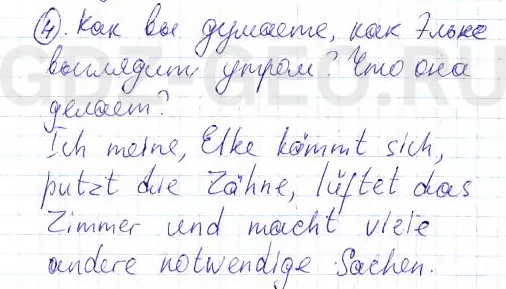 ④. Как вы думаете, как Эльке
выглядит утром? Что она
делает?
Ich meine, Elke kämmt sich,
putzt die Zähne, lüftet das
Zimmer und macht viele
andere notwendige Sachen.